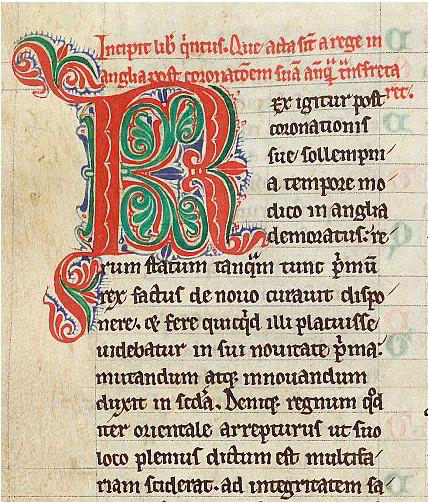 Incipit lib̃ q̃ntus. Que acta sĩt a rege in
anglia post coronatõem suã anq̃̃ t̃nsfreta
ret.
REx igitur post
coronationis
sue sollempni
a tempore mo
dico in anglia
demoratus: re
rum statum tanq̃m tunc p̃mũ
rex factus de nouo curauit dispo
nere. ⁊ fere quicq̃d illi placuisse
uidebatur in sui nouitate p̃ma.
mutandum atq; innouandum
duxit in scd̃a. Deniq; regnum q̃d
iter orientale arrepturus ut suo
loco plenius dictum est multifa
riam sciderat. ad integritatem sa